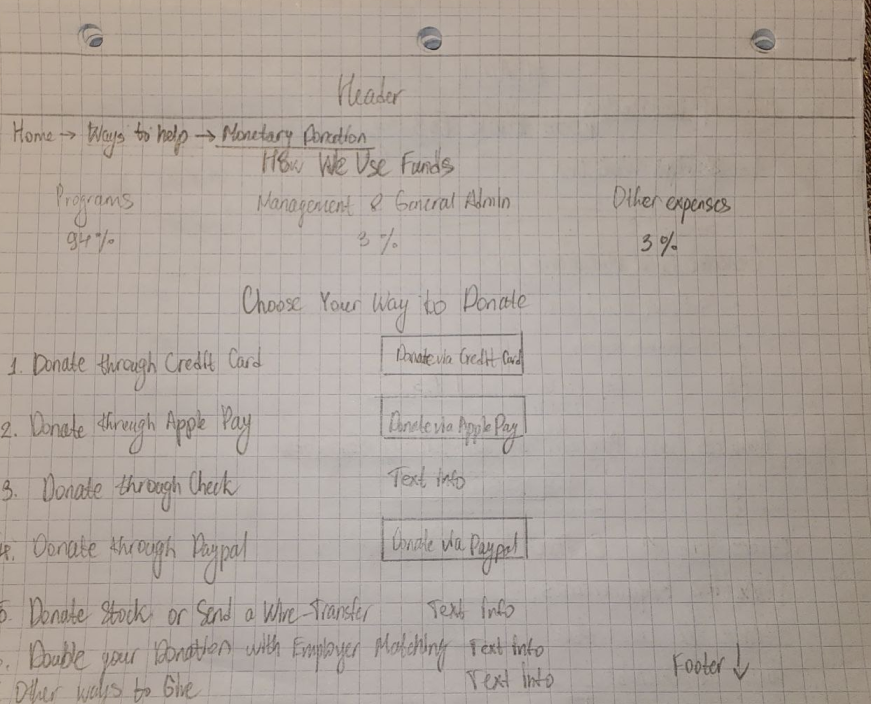 Header
Home → Ways to help → Monetary Donation
How We Use Funds
Programs Management & General Admin Other expenses
94% 3% 3%
Choose Your Way to Donate
1. Donate through Credit Card Donate via Credit Card
2. Donate through Apple Pay Donate via Apple Pay
3. Donate through Check Text info
4. Donate through Paypal Donate via Paypal
5. Donate Stock or Send a Wire-Transfer Text Info
. Double your Donation with Employer Matching Text info
Other ways to Give Text info
Footer ↓